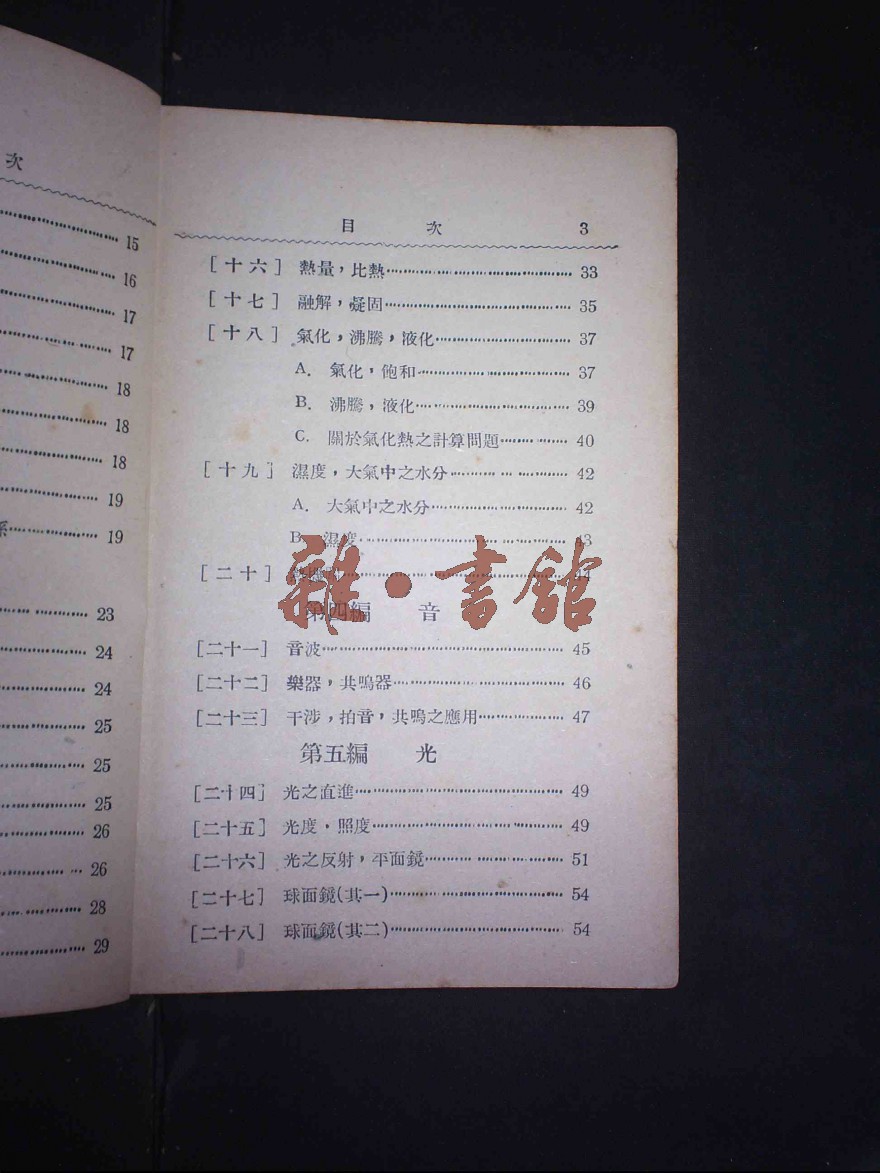 次
15
16
17
17
18
18
18
19
19
23
24
24
25
25
25
26
26
28
29
目 次 3
[十六] 熱量，比熱 33
[十七] 融解，凝固 35
[十八] 氣化，沸騰，液化 37
A. 氣化，飽和 37
B. 沸騰，液化 39
C. 關於氣化熱之計算問題 40
[十九] 濕度，大氣中之水分 42
A. 大氣中之水分 42
B. 濕度 43
[二十]
雜·書館
第四編 音
[二十一] 音波 45
[二十二] 樂器，共鳴器 46
[二十三] 干涉，拍音，共鳴之應用 47
第五編 光
[二十四] 光之直進 49
[二十五] 光度·照度 49
[二十六] 光之反射，平面鏡 51
[二十七] 球面鏡(其一) 54
[二十八] 球面鏡(其二) 54